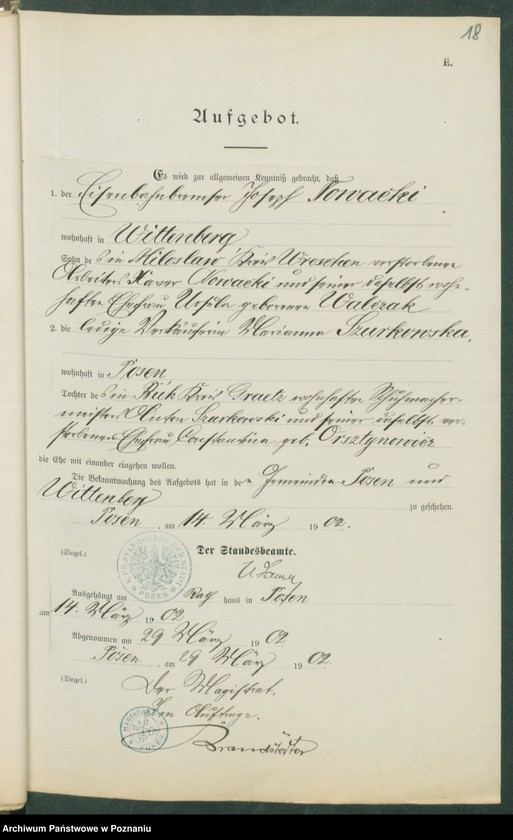 18
E.
Aufgebot.
Es wird zur allgemeinen Kenntniß gebracht, daß
1. der Eisenbahnbremser Joseph Nowacki
wohnhaft in Wittenberg
Sohn des in Miloslaw Kreis Wreschen verstorbenen
Arbeiters Xaver Nowacki und seiner daselbst wohn-
haften Ehefrau Ursula geborenen Walczak
2. die ledige Verkäuferin Marianna Szurkowska,
wohnhaft in Posen
Tochter des in Buk Kreis Graetz wohnhaften Schuhmacher-
meisters Anton Szurkowski und seiner daselbst ver-
storbenen Ehefrau Constantina geb. Orsztynowicz
die Ehe mit einander eingehen wollen.
Die Bekanntmachung des Aufgebots hat in den Gemeinden Posen und
Wittenberg zu geschehen.
Posen, am 14 März 1902.
(Siegel.) Der Standesbeamte.
Ausgehängt am Rathhaus in Posen
am 14. März 1902
Abgenommen am 29 März 1902
Posen, am 29 März 1902
(Siegel.)
Der Magistrat.
Im Auftrage.
Brandstädter
POSEN
MAGISTRAT
POSEN
Archiwum Państwowe w Poznaniu